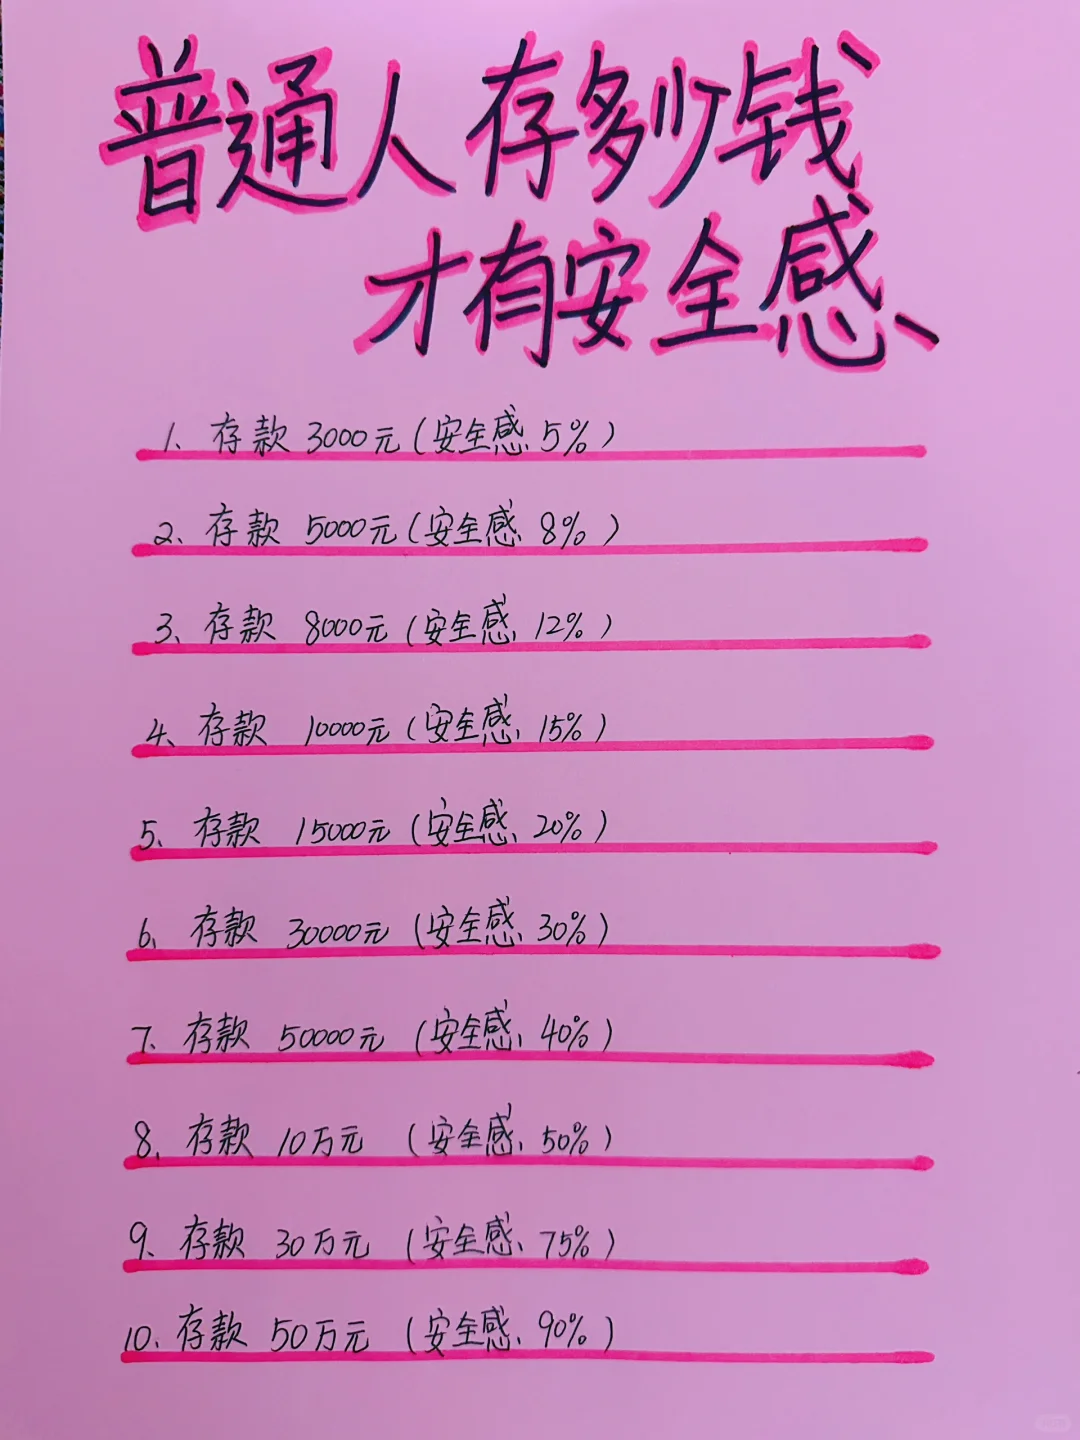 普通人存多少钱
才有安全感
1、存款 3000元(安全感 5%)
2、存款 5000元(安全感 8%)
3、存款 8000元(安全感 12%)
4、存款 10000元(安全感 15%)
5、存款 15000元(安全感 20%)
6、存款 30000元(安全感 30%)
7、存款 50000元(安全感 40%)
8、存款 10万元(安全感 50%)
9、存款 30万元(安全感 75%)
10、存款 50万元(安全感 90%)